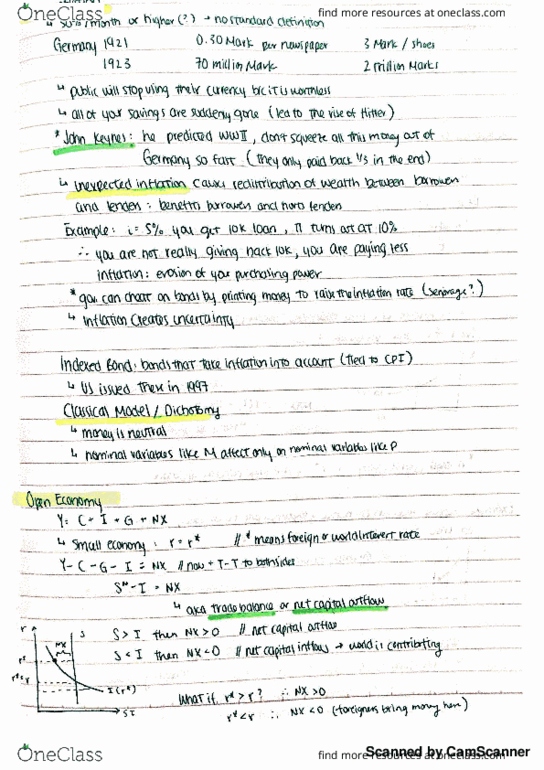 OneClass
find more resources at oneclass.com
↳ 50%/month or higher(?) → no standard definition
Germany 1921 0.30 Mark per newspaper 3 Mark / shoes
1923 70 million Mark 2 trillion Marks
↳ public will stop using their currency b/c it is worthless
↳ all of your savings are suddenly gone (lead to the rise of Hitler)
* John Keynes: he predicted WWII, don't squeeze all this money out of
Germany so fast (they only paid back 1/3 in the end)
↳ Unexpected inflation causes redistribution of wealth between borrowers
and lenders: benefits borrowers and hurts lenders
Example: i = 5% you get 10k loan, π turns out at 10%
∴ you are not really giving back 10k, you are paying less
inflation: erosion of your purchasing power
* gov can cheat on bonds by printing money to raise the inflation rate (seniorage?)
↳ inflation creates uncertainty
Indexed Bond: bonds that take inflation into account (tied to CPI)
↳ US issued these in 1997
Classical Model / Dichotomy
↳ money is neutral
↳ nominal variables like M affect only on nominal variables like P
Open Economy
Y = C + I + G + NX
↳ Small economy: r = r* // * means foreign or world interest rate
Y - C - G - I = NX // now + T - T to both sides
- I = NX
↳ aka trade balance or net capital outflow
S > I then NX > 0 // net capital outflow
S < I then NX < 0 // net capital inflows → world is contributing
r S NX r* I(r*) S I
What if r* > r? ∴ NX > 0
r* < r ∴ NX < 0 (foreigners bring money here)
OneClass
find more resources at oneclass.com
Scanned by CamScanner